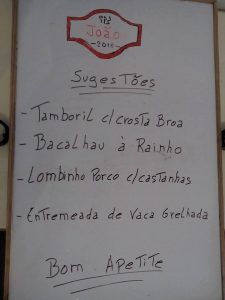 João
-2010-
Sugestões
- Tamboril c/crosta Broa
- Bacalhau à Rainho
- Lombinho Porco c/castanhas
- Entremeada de Vaca Grelhada
Bom Apetite